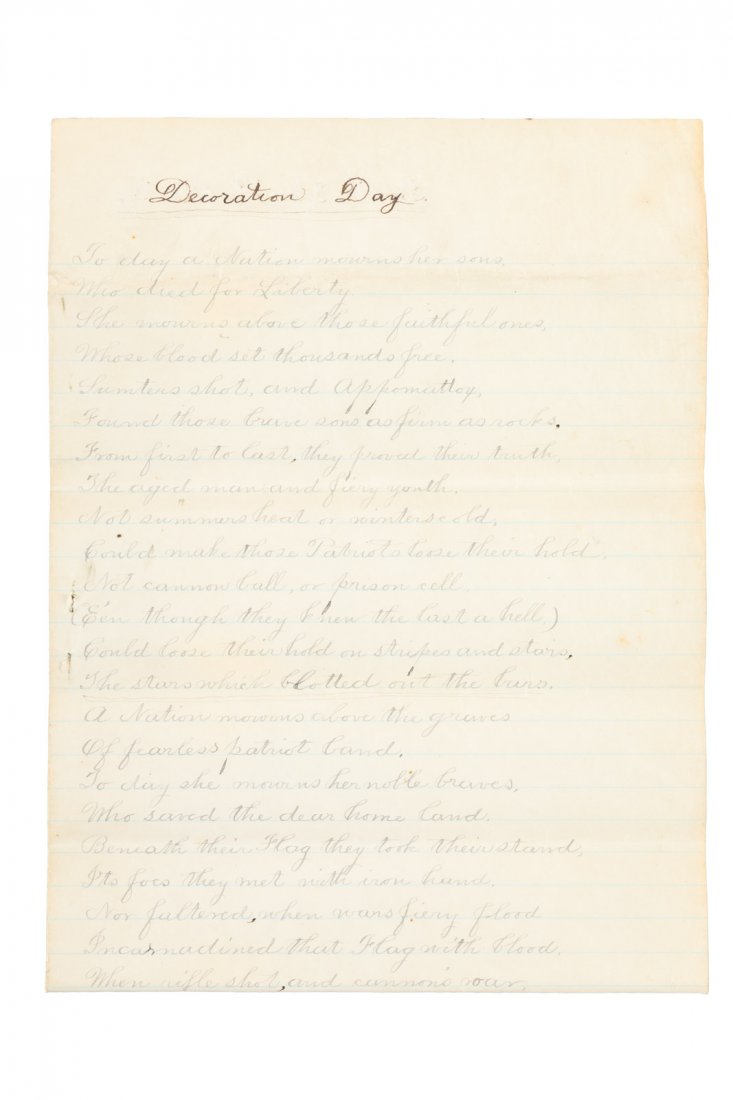 Decoration Day.
To day a Nation mourns her sons,
Who died for Liberty.
She mourns above those faithful ones,
Whose blood set thousands free.
Sumters shot, and Appomattox,
Found those brave sons as firm as rocks.
From first to last, they proved their truth,
The aged man and fiery youth.
Not summers heat or winters cold,
Could make those Patriots loose their hold.
Not cannon ball, or prison cell
(E'en though they knew the last a hell.)
Could loose their hold on stripes and stars,
The stars which blotted out the bars.
A Nation mourns above the graves
Of fearless patriot band.
To day she mourns her noble braves,
Who saved the dear home land.
Beneath their Flag they took their stand,
It's foes they met with iron hand.
Nor faltered, when wars fiery flood
Incarnadined that Flag with blood.
When rifle shot, and cannon's roar,